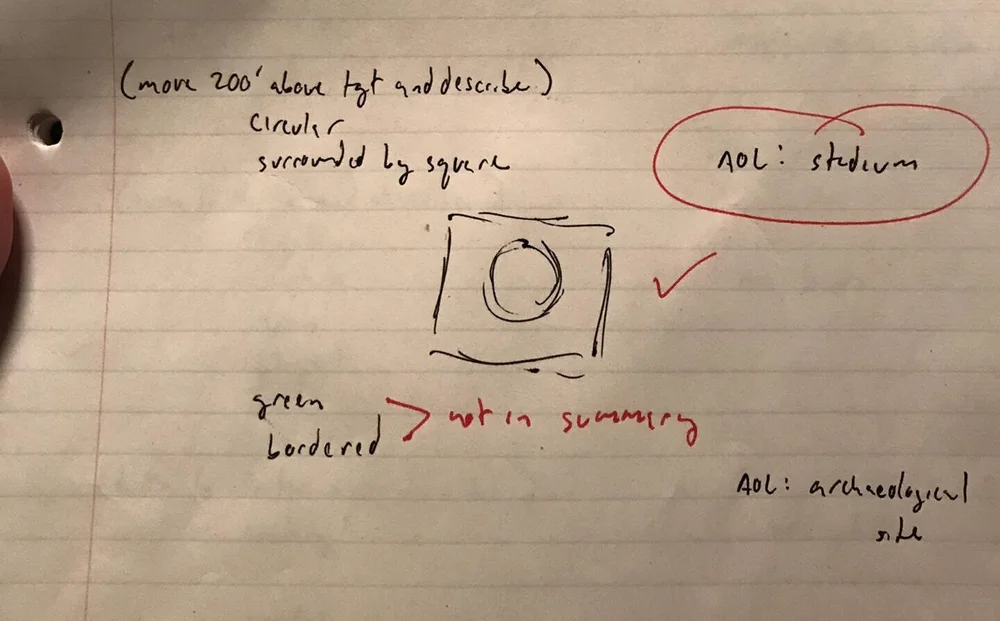 (move 200' above tgt and describe)
circular
surrounded by square
AOL: stadium
green
bordered
> not in summary
AOL: archaeological
site